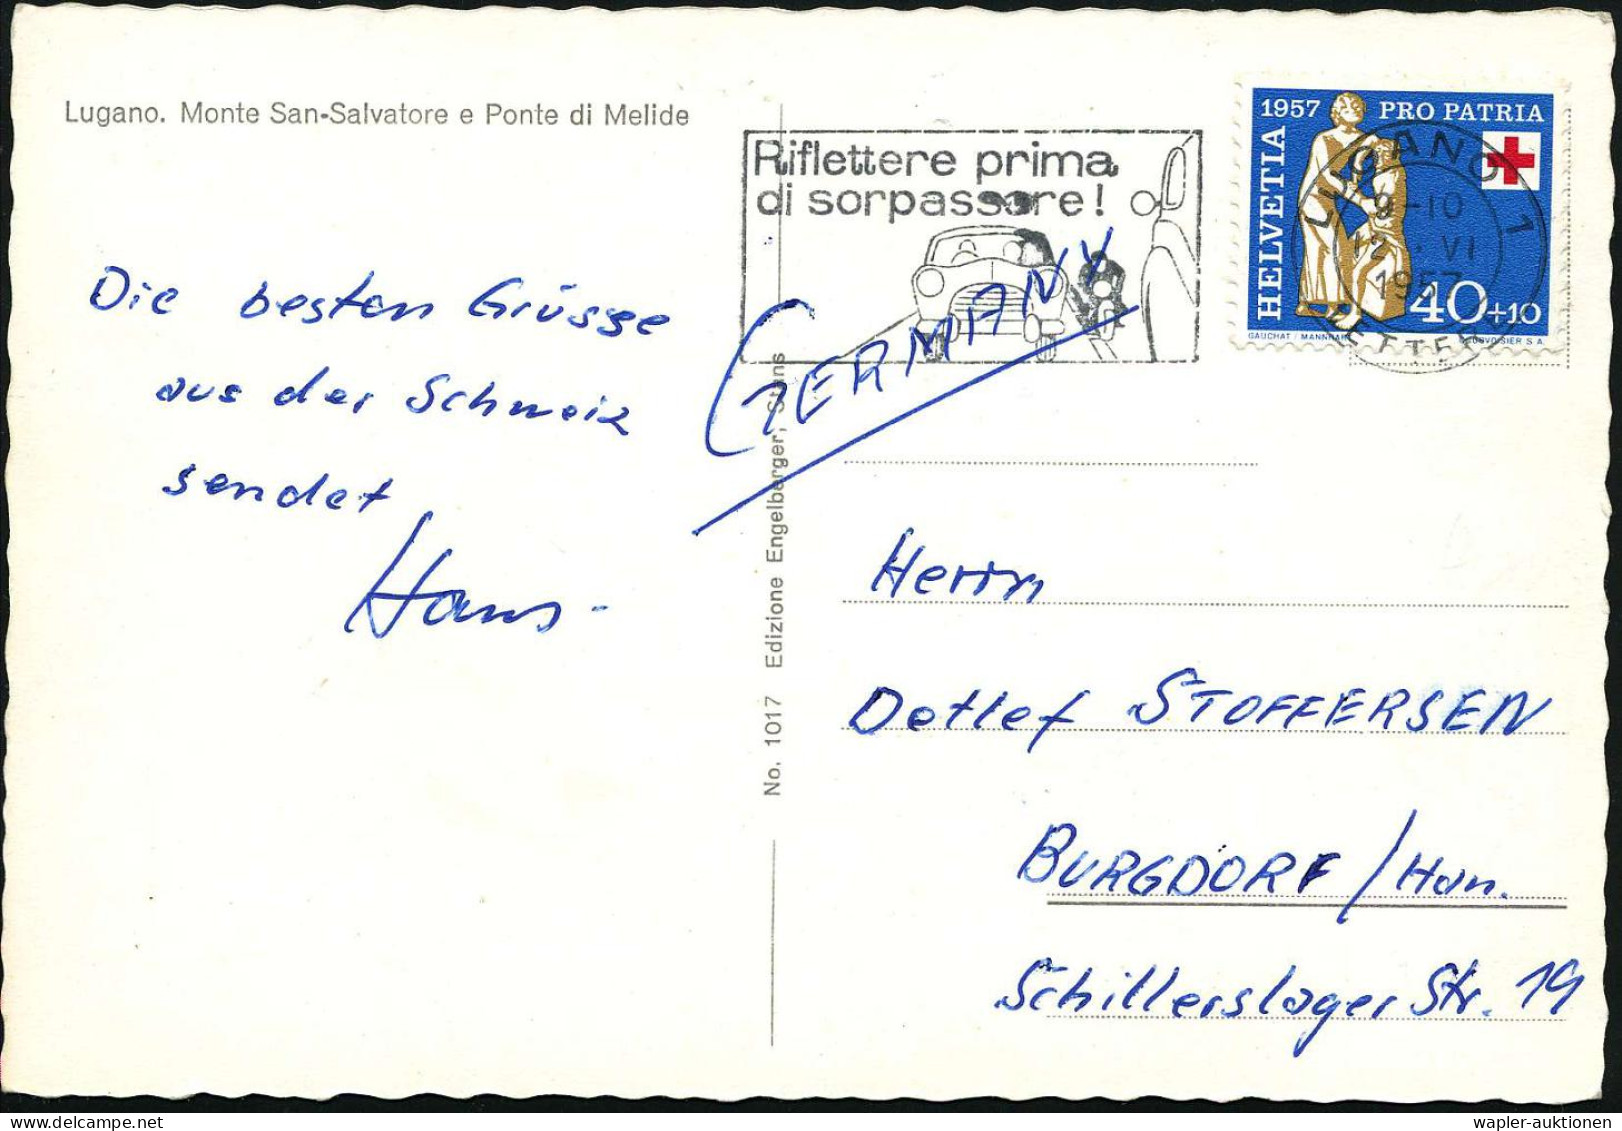 Lugano. Monte San-Salvatore e Ponte di Melide
Riflettere prima
di sorpassare!
1957 PRO PATRIA
HELVETIA
40+10
GAUCHAT / MANNHART COURVOISIER S A.
LUGANO 1
9-10
12. VI
1957
LETTERE
Die besten Grüsse
aus der Schweiz
sendet
Hans-
GERMANY
No. 1017 Edizione Engelberger, Stans
Herrn
Detlef STOFFERSEN
BURGDORF / Han.
Schillerslager Str. 19
wapler-auktionen